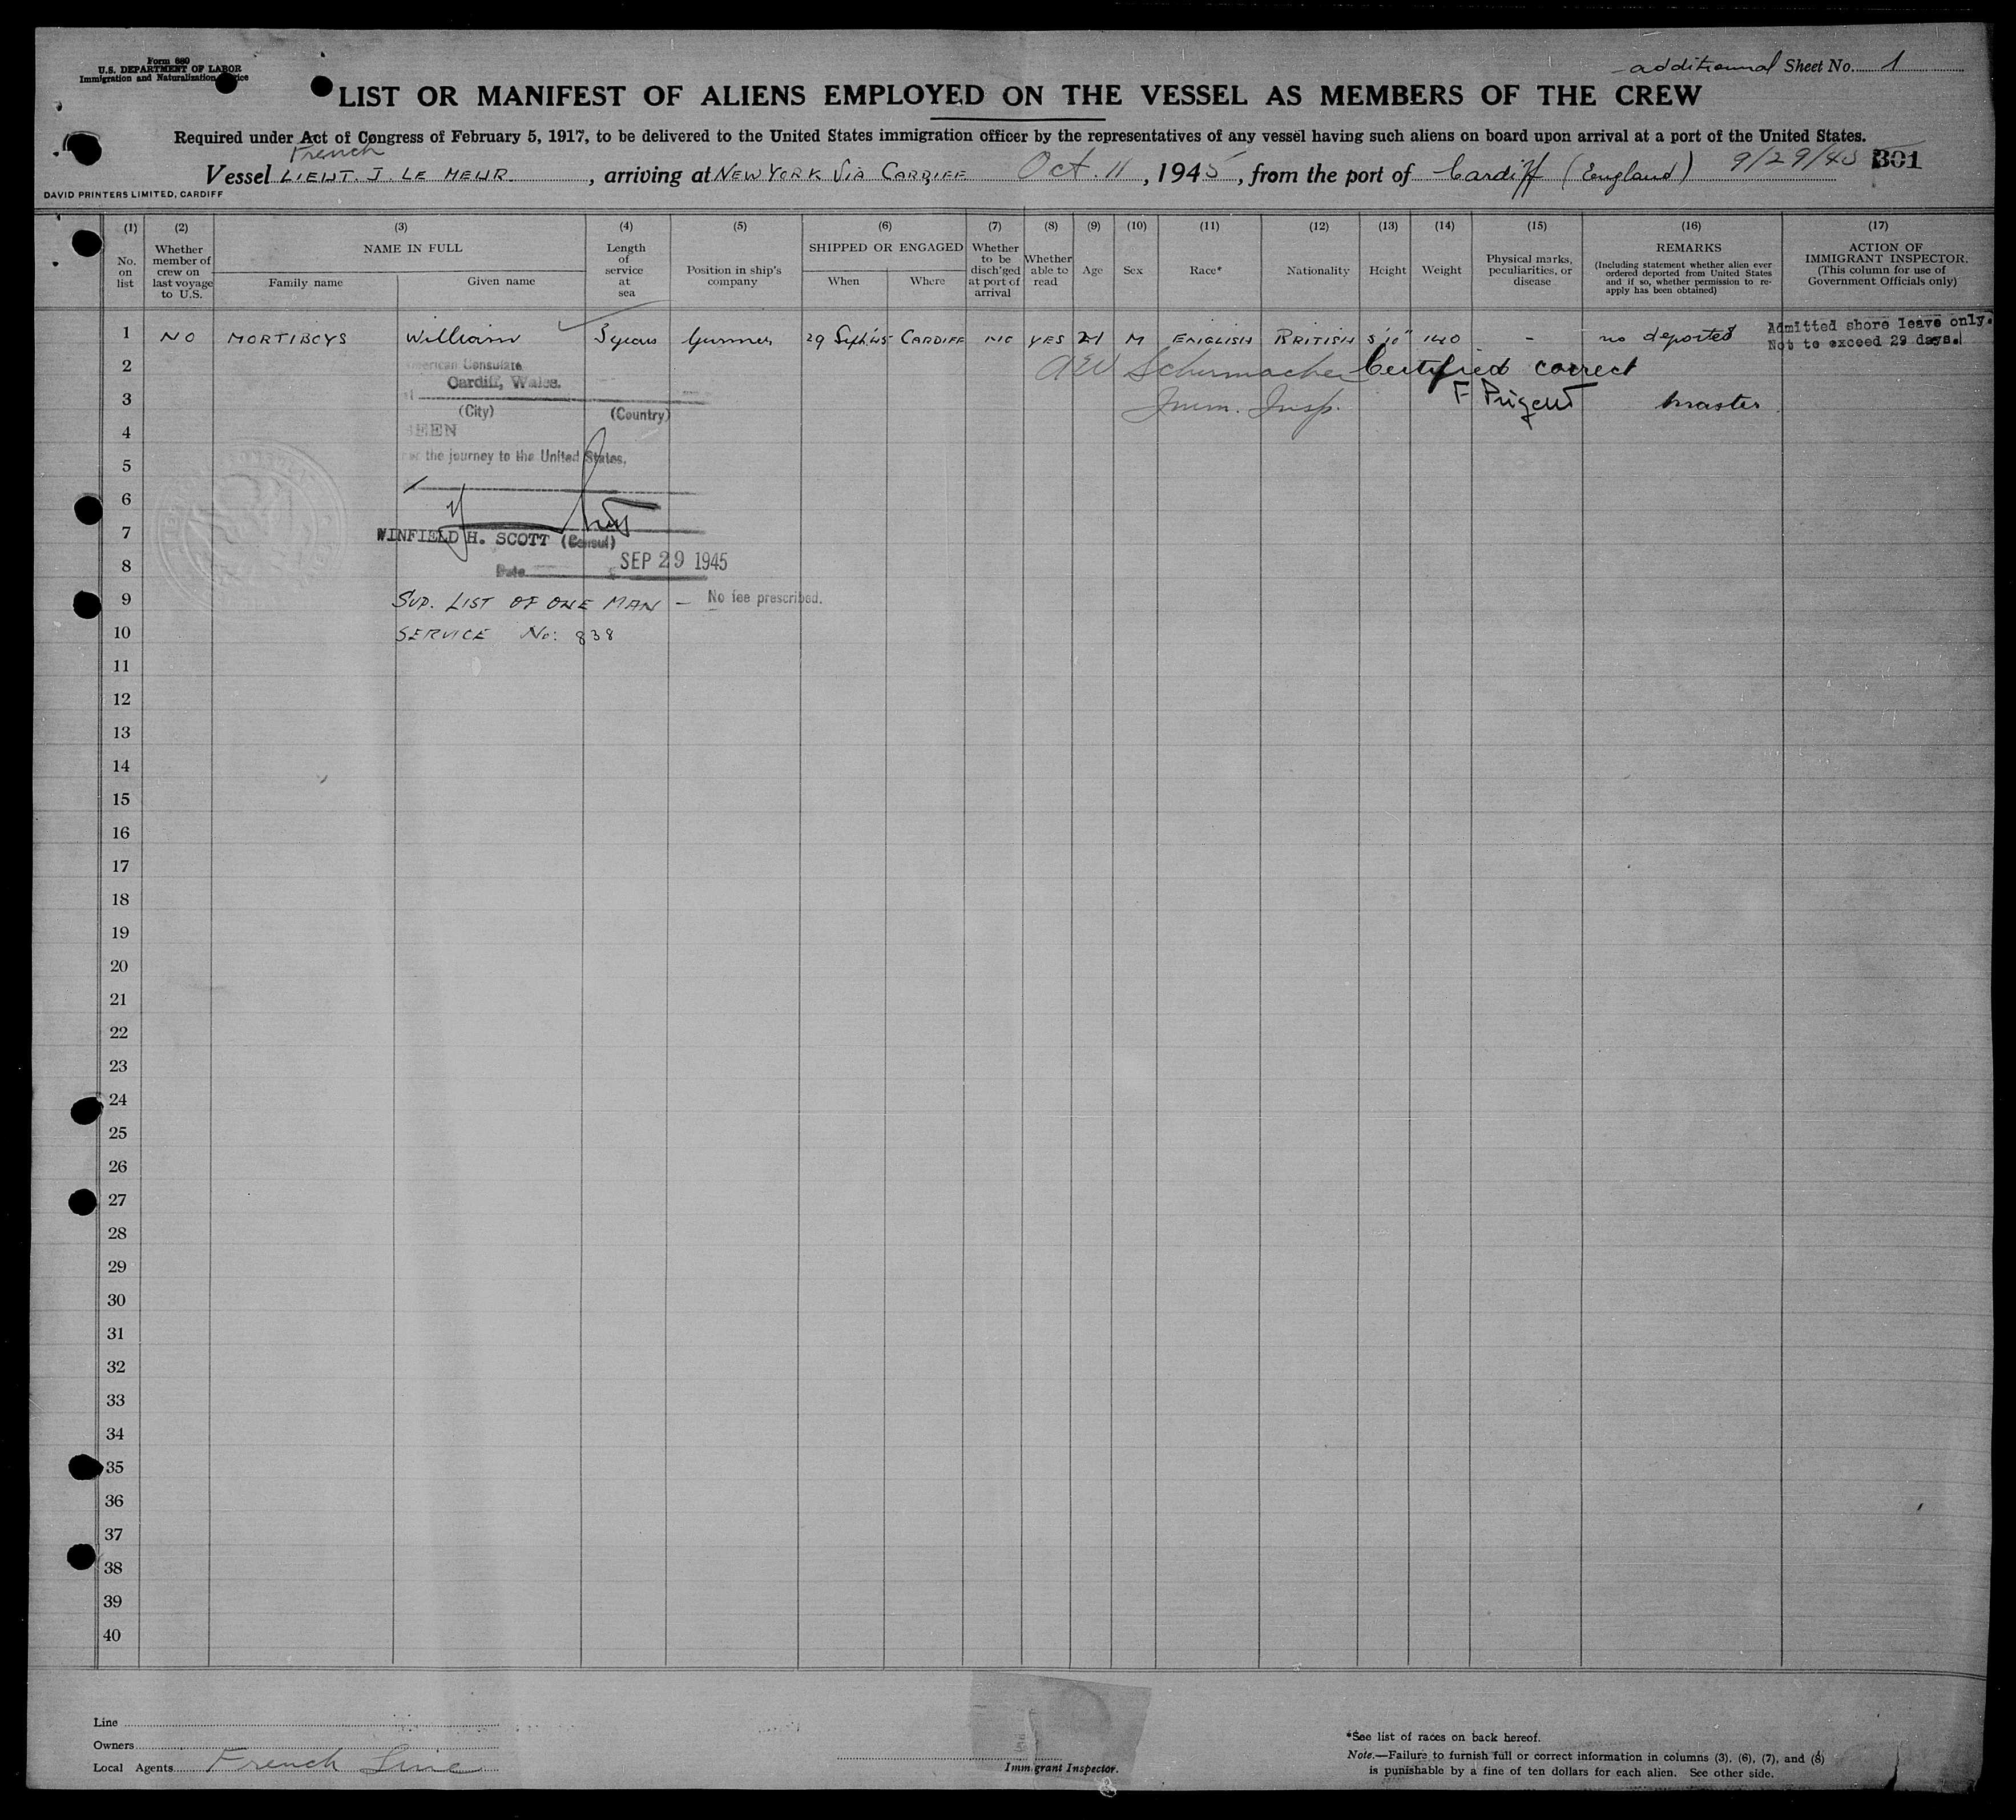 Form 680
U.S. DEPARTMENT OF LABOR
Immigration and Naturalization Service
additionnal Sheet No. 1
LIST OR MANIFEST OF ALIENS EMPLOYED ON THE VESSEL AS MEMBERS OF THE CREW
Required under Act of Congress of February 5, 1917, to be delivered to the United States immigration officer by the representatives of any vessel having such aliens on board upon arrival at a port of the United States.
French
Vessel LIEUT. J. LE MEUR, arriving at NEW YORK VIA CARDIFF Oct. 11, 1945, from the port of Cardiff (England) 9/29/45 301
DAVID PRINTERS LIMITED, CARDIFF
(1) (2) (3) (4) (5) (6) (7) (8) (9) (10) (11) (12) (13) (14) (15) (16) (17)
No. on list
Whether member of crew on last voyage to U.S.
NAME IN FULL
Family name
Given name
Length of service at sea
Position in ship's company
SHIPPED OR ENGAGED
When
Where
Whether to be disch'ged at port of arrival
Whether able to read
Age
Sex
Race*
Nationality
Height
Weight
Physical marks, peculiarities, or disease
REMARKS
(Including statement whether alien ever ordered deported from United States and if so, whether permission to re-apply has been obtained)
ACTION OF IMMIGRANT INSPECTOR.
(This column for use of Government Officials only)
1 NO MORTIBOYS William 3 years Gunner 29 Sept. '45 CARDIFF NO YES 21 M ENGLISH BRITISH 5'10" 140 - no deported Admitted shore leave only. Not to exceed 29 days.
2 American Consulate AEW Schumacher Certified correct
Cardiff, Wales.
3 (City) (Country) Imm. Insp. F Prigent Master
4 SEEN
5 the journey to the United States.
6
7 WINFIELD H. SCOTT (Consul)
8 Date SEP 29 1945
9 SUP. LIST OF ONE MAN - No fee prescribed.
10 SERVICE No: 838
11
12
13
14
15
16
17
18
19
20
21
22
23
24
25
26
27
28
29
30
31
32
33
34
35
36
37
38
39
40
Line
Owners
Local Agents French Line
Immigrant Inspector.
*See list of races on back hereof.
Note.—Failure to furnish full or correct information in columns (3), (6), (7), and (8)
is punishable by a fine of ten dollars for each alien. See other side.